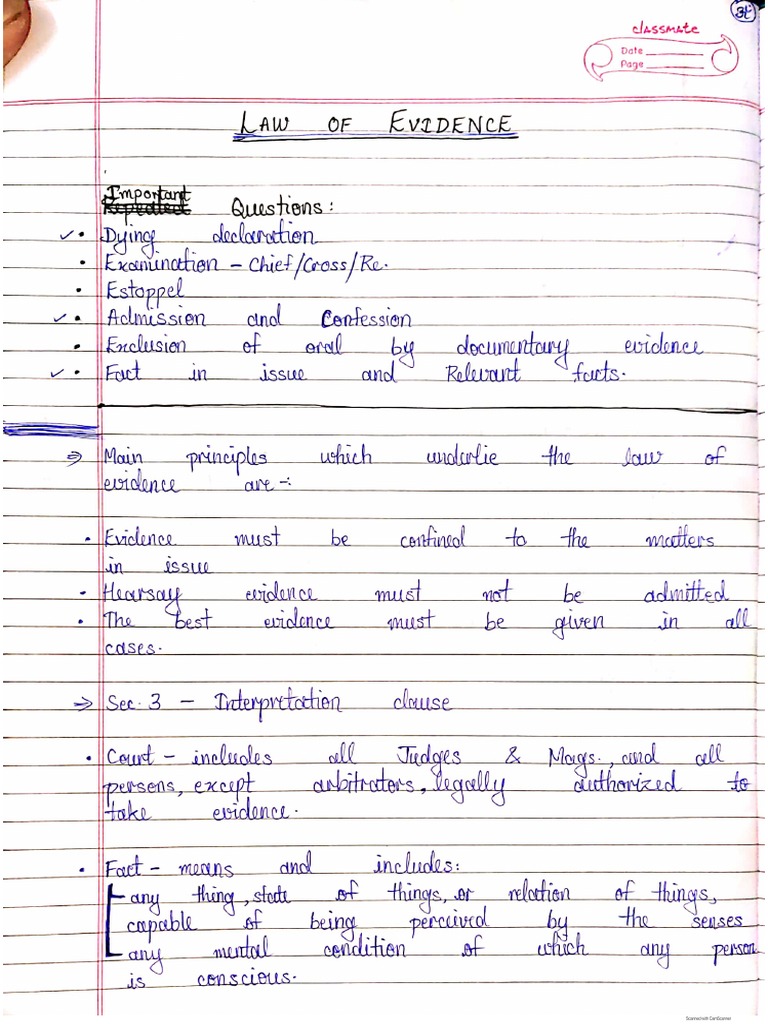 classmate
Date
Page
LAW OF EVIDENCE
Important
Repeated Questions:
✓ • Dying declaration
• Examination - Chief/Cross/Re.
• Estoppel
✓ • Admission and Confession
• Exclusion of oral by documentary evidence
✓ • Fact in issue and Relevant facts.
⇒ Main principles which underlie the law of
evidence are -:
• Evidence must be confined to the matters
in issue
• Hearsay evidence must not be admitted
• The best evidence must be given in all
cases.
⇒ Sec. 3 - Interpretation clause
• Court - includes all Judges & Mags., and all
persons, except arbitrators, legally authorized to
take evidence.
• Fact - means and includes:
any thing, state of things, or relation of things,
capable of being perceived by the senses
any mental condition of which any person
is conscious.
Scanned with CamScanner